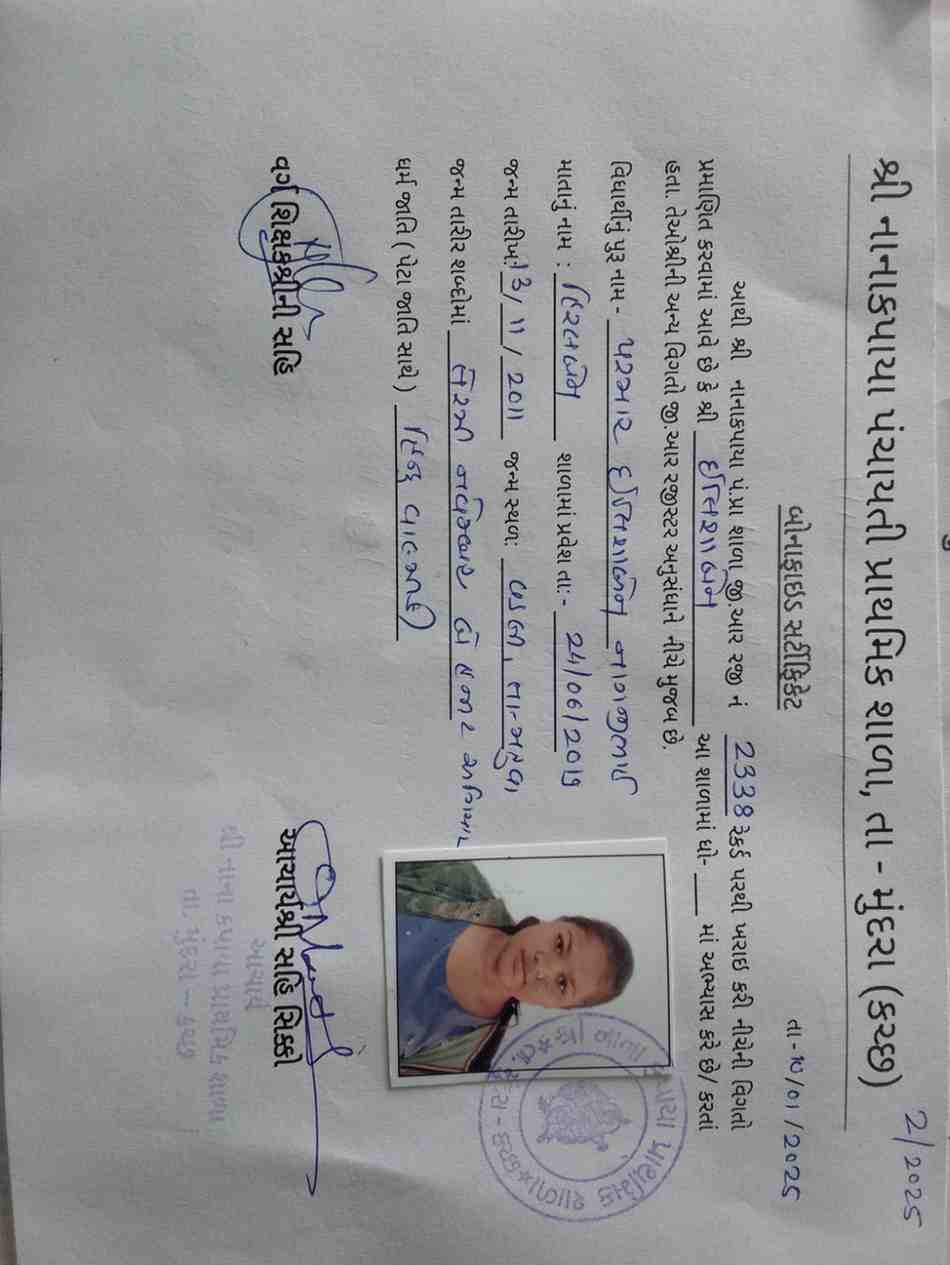 2/2025
શ્રી નાનાકપાયા પંચાયતી પ્રાથમિક શાળા, તા - મુંદરા (કચ્છ)
તા - ૧૦/01/2025
બોનાફાઇડ સર્ટીફિકેટ
આથી શ્રી નાનાકપાયા પં.પ્રા શાળા જી.આર રજી નં 2338 રેકર્ડ પરથી ખરાઇ કરી નીચેની વિગતો
પ્રમાણિત કરવામાં આવે છે કે શ્રી આ શાળામાં ધો- ___ માં અભ્યાસ કરે છે/ કરતાં
હતા. તેઓશ્રીની અન્ય વિગતો જી.આર રજીસ્ટર અનુસંધાને નીચે મુજબ છે.
વિધાર્થીનું પુરૂ નામ - પરમાર નાગજીભાઈ
માતાનું નામ : શાળામાં પ્રવેશ તા:- 24/06/2019
જન્મ તારીખ: 13/11/2011 જન્મ સ્થળ:
જન્મ તારીર શબ્દોમાં તેરમી નવેમ્બર બે હજાર અગિયાર
ધર્મ જાતિ ( પેટા જાતિ સાથે )  હિન્દુ વાલ્મીકી
વર્ગ શિક્ષકશ્રીની સહિ
આચાર્યશ્રી સહિ સિક્કો
આચાર્ય
શ્રી નાના કપાયા પ્રાથમિક શાળા
તા. મુંદરા - કચ્છ